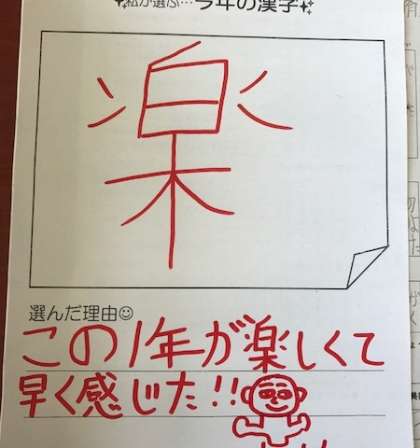 ✨私が選ぶ…今年の漢字✨
楽
選んだ理由☺
この1年が楽しくて
早く感じた!!